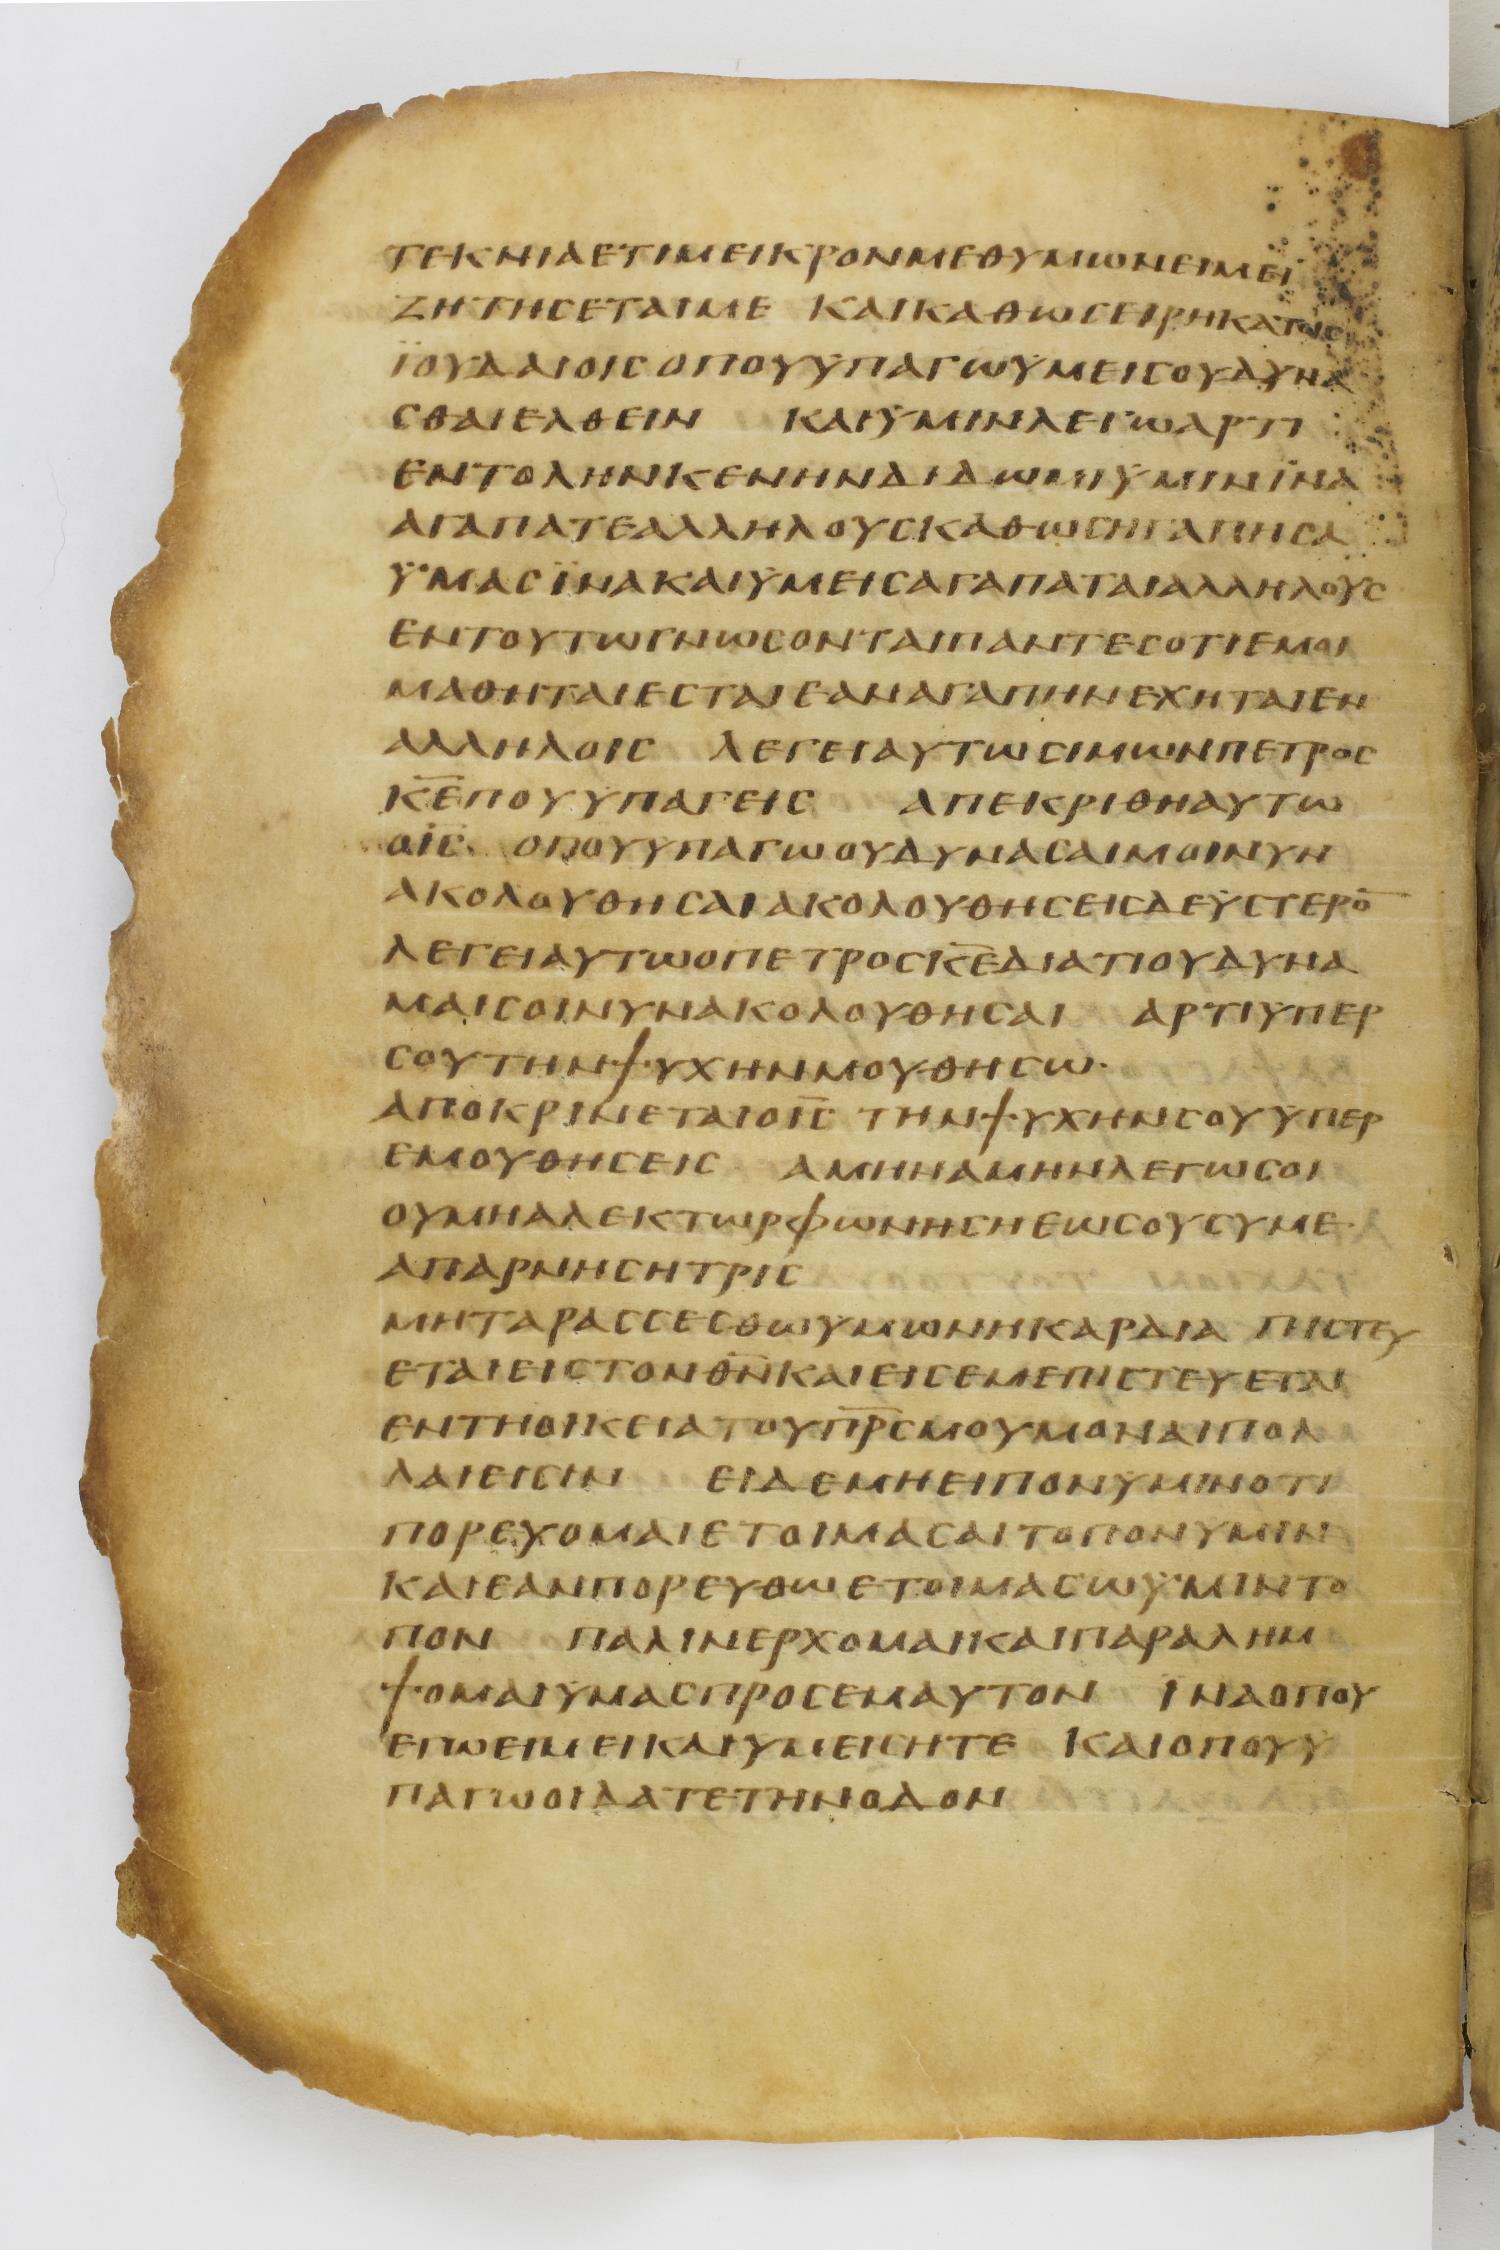 ΤΕΚΝΙΑΕΤΙΜΕΙΚΡΟΝΜΕΘΥΜΩΝΕΙΜΕΙ
ΖΗΤΗСΕΤΑΙΜΕ ΚΑΙΚΑΘΩСΕΙΡΗΚΑΤΟΙС
ΪΟΥΔΑΙΟΙСΟΠΟΥΫΠΑΓΩΫΜΕΙСΟΥΔΥΝΑ
СΘΑΙΕΛΘΕΙΝ ΚΑΙΫΜΙΝΛΕΓΩΑΡΤΙ
ΕΝΤΟΛΗΝΚΕΝΗΝΔΙΔΩΜΙΫΜΙΝΪΝΑ
ΑΓΑΠΑΤΕΑΛΛΗΛΟΥСΚΑΘΩСΗΓΑΠΗСΑ
ΫΜΑСΪΝΑΚΑΙΫΜΕΙСΑΓΑΠΑΤΑΙΑΛΛΗΛΟΥС
ΕΝΤΟΥΤΩΓΝΩСΟΝΤΑΙΠΑΝΤΕСΟΤΙΕΜΟΙ
ΜΑΘΗΤΑΙΕСΤΑΙΕΑΝΑΓΑΠΗΝΕΧΗΤΑΙΕΝ
ΑΛΛΗΛΟΙС ΛΕΓΕΙΑΥΤΩСΙΜΩΝΠΕΤΡΟС
Κ̅Ε̅ΠΟΥΫΠΑΓΕΙС ΑΠΕΚΡΙΘΗΑΥΤΩ
ΟΙ̅С̅ ΟΠΟΥΥΠΑΓΩΟΥΔΥΝΑСΑΙΜΟΙΝΥΝ
ΑΚΟΛΟΥΘΗСΑΙΑΚΟΛΟΥΘΗСΕΙСΔΕΫСΤΕΡΟ̅
ΛΕΓΕΙΑΥΤΩΟΠΕΤΡΟСΚ̅Ε̅ΔΙΑΤΙΟΥΔΥΝΑ
ΜΑΙСΟΙΝΥΝΑΚΟΛΟΥΘΗСΑΙ ΑΡΤΙΥΠΕΡ
СΟΥΤΗΝΨΥΧΗΝΜΟΥΘΗСΩ·
ΑΠΟΚΡΙΝΕΤΑΙΟΙ̅С̅ ΤΗΝΨΥΧΗΝСΟΥΫΠΕΡ
ΕΜΟΥΘΗСΕΙС ΑΜΗΝΑΜΗΝΛΕΓΩСΟΙ
ΟΥΜΗΑΛΕΚΤΩΡΦΩΝΗСΗΕΩСΟΥСΥΜΕ
ΑΠΑΡΝΗСΗΤΡΙС
ΜΗΤΑΡΑССΕСΘΩΥΜΩΝΗΚΑΡΔΙΑ ΠΙСΤΕΥ
ΕΤΑΙΕΙСΤΟΝΘ̅Ν̅ΚΑΙΕΙСΕΜΕΠΙСΤΕΥΕΤΑΙ
ΕΝΤΗΟΙΚΕΙΑΤΟΥΠ̅Ρ̅С̅ΜΟΥΜΟΝΑΙΠΟΛ
ΛΑΙΕΙСΙΝ ΕΙΔΕΜΗΕΙΠΟΝΫΜΙΝΟΤΙ
ΠΟΡΕΥΟΜΑΙΕΤΟΙΜΑСΑΙΤΟΠΟΝΥΜΙΝ
ΚΑΙΕΑΝΠΟΡΕΥΘΩΕΤΟΙΜΑСΩΫΜΙΝΤΟ
ΠΟΝ ΠΑΛΙΝΕΡΧΟΜΑΙΚΑΙΠΑΡΑΛΗΜ
ΨΟΜΑΙΥΜΑСΠΡΟСΕΜΑΥΤΟΝ ΪΝΑΟΠΟΥ
ΕΓΩΕΙΜΕΙΚΑΙΥΜΕΙСΗΤΕ ΚΑΙΟΠΟΥΫ
ΠΑΓΩΟΙΔΑΤΕΤΗΝΟΔΟΝ